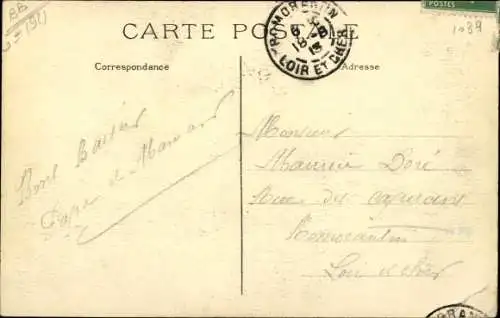 CARTE POSTALE
ROMORENTIN
LOIR ET CHER
POSTES
1089
Correspondance
Adresse
Bons Baisers
Papa et Maman
Monsieur
Maurice Doré
Rue des capucins
Romorantin
Loir et Cher